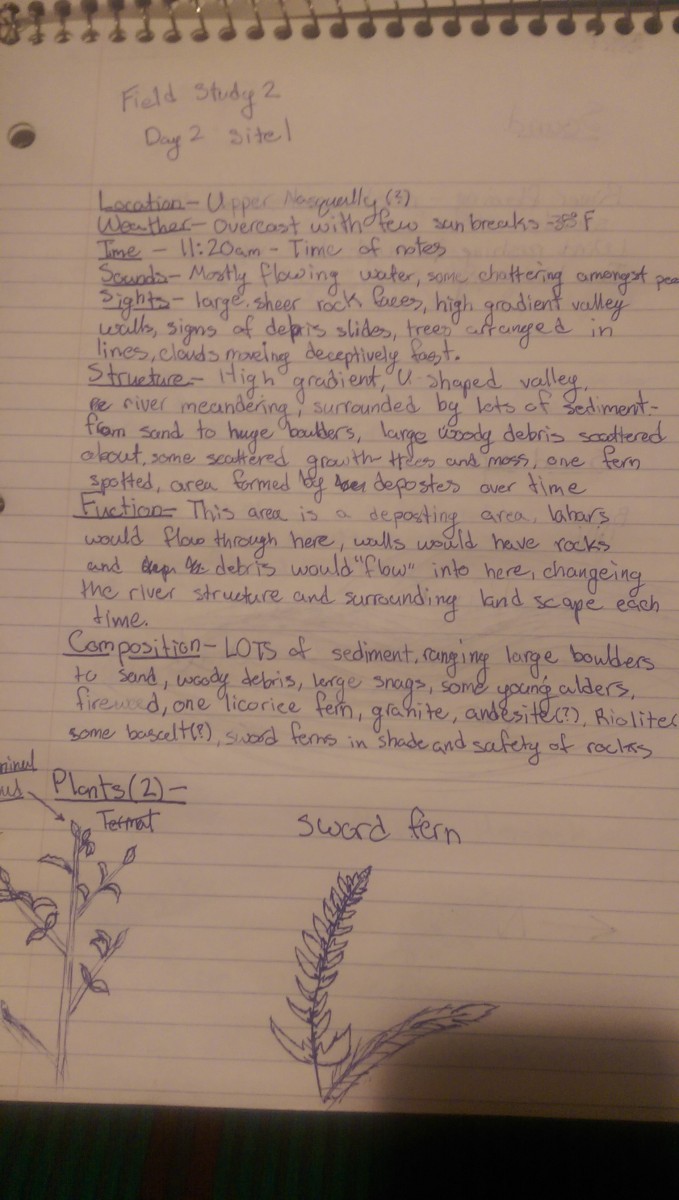 Field Study 2
Day 2 Site 1
Location - Upper Nasqually (?)
Weather - Overcast with few sun breaks ~38° F
Time - 11:20am - Time of notes
Sounds - Mostly flowing water, some chattering amongst
Sights - large, sheer rock faces, high gradient valley
walls, signs of debris slides, trees arranged in
lines, clouds moveing deceptively fast.
Structure - High gradient, U-shaped valley,
river meandering, surrounded by lots of sediment-
from sand to huge boulders, large woody debris scattered
about, some scattered growth - trees and moss, one fern
spotted, area formed by deposites over time
Fuction - This area is a depositing area, lahars
would flow through here, walls would have rocks
and debris would "flow" into here, changeing
the river structure and surrounding land scape each
time.
Composition - LOTS of sediment, ranging large boulders
to sand, woody debris, large snags, some young alders,
fireweed, one licorice fern, granite, andesite(?), Riolite
some bascelt(?), sword ferns in shade and safety of rocks
Plants (2) -
sword fern